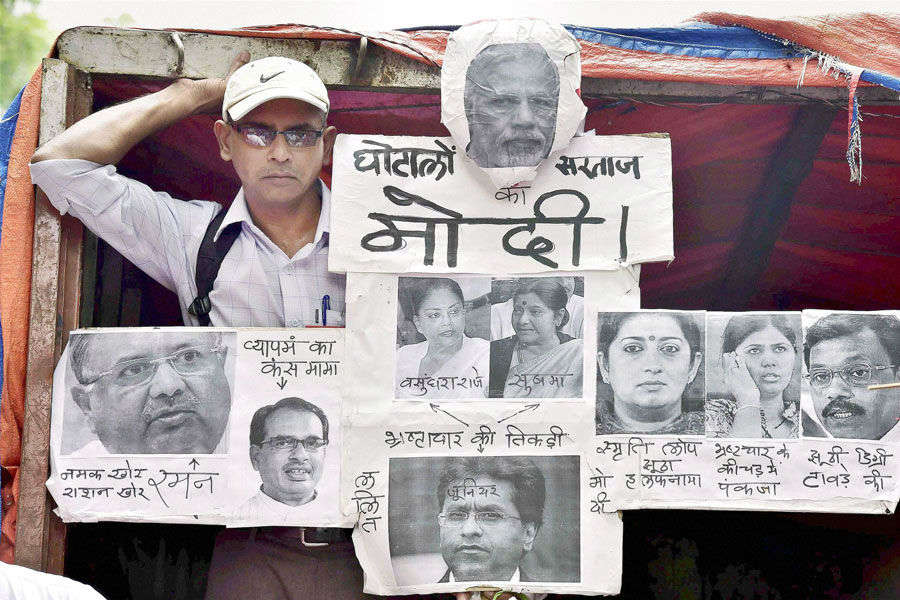 घोटालों का सरताज
मोदी।
व्यापमं का
कंस मामा
नमक खोर
राशन खोर
रमन
वसुंधरा राजे
सुषमा
भ्रष्टाचार की तिकड़ी
जूनियर
ललित
मोदी
स्मृति
झूठा
हलफनामा
भ्रष्टाचार के
कीचड़ में
पंकजा
डिग्री
तावड़े की